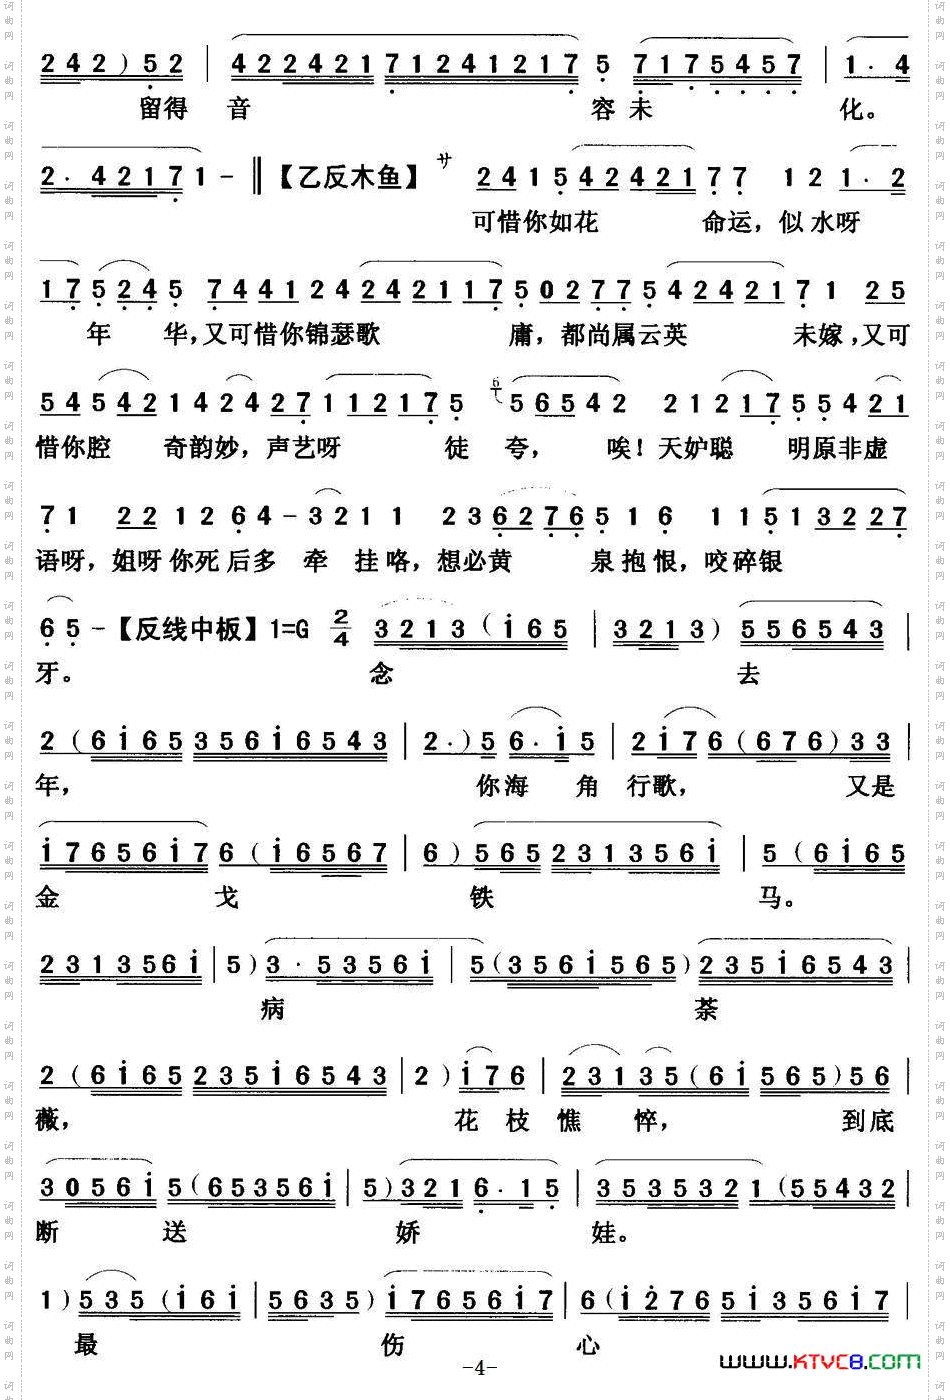 2 4 2 ) 5 2 | 4 2 2 4 2 1 7 1 2 4 1 2 1 7 5 7 1 7 5 4 5 7 | 1 · 4
留得 音 容 未 化。
2 · 4 2 1 7 1 - ‖ 【乙反木鱼】 サ 2 4 1 5 4 2 4 2 1 7 7 1 2 1 · 2
可惜你如花 命运，似 水呀
1 7 5 2 4 5 7 4 4 1 2 4 2 4 2 1 1 7 5 0 2 7 7 5 4 2 4 2 1 7 1 2 5
年 华，又可惜你锦瑟歌 庸，都尚属云英 未嫁，又可
5 4 5 4 2 1 4 2 4 2 7 1 1 2 1 7 5 6 5 6 5 4 2 2 1 2 1 7 5 5 4 2 1
惜你腔 奇韵妙，声艺呀 徒 夸， 唉！天妒聪 明原非虚
7 1 2 2 1 2 6 4 - 3 2 1 1 2 3 6 2 7 6 5 1 6 1 1 5 1 3 2 2 7
语呀，姐呀你死后多 牵 挂咯，想必黄 泉抱恨，咬碎银
6 5 - 【反线中板】1=G 2/4 3 2 1 3 ( i 6 5 | 3 2 1 3 ) 5 5 6 5 4 3 |
牙。 念 去
2 ( 6 i 6 5 3 5 6 i 6 5 4 3 | 2 · ) 5 6 · i 5 | 2 i 7 6 ( 6 7 6 ) 3 3 |
年， 你海 角 行歌， 又是
i 7 6 5 6 i 7 6 ( i 6 5 6 7 | 6 ) 5 6 5 2 3 1 3 5 6 i | 5 ( 6 i 6 5
金 戈 铁 马。
2 3 1 3 5 6 i | 5 ) 3 · 5 3 5 6 i | 5 ( 3 5 6 i 5 6 5 ) 2 3 5 i 6 5 4 3 |
病 荼
2 ( 6 i 6 5 2 3 5 i 6 5 4 3 | 2 ) i 7 6 | 2 3 1 3 5 ( 6 i 5 6 5 ) 5 6
薇， 花 枝 憔 悴， 到底
3 0 5 6 i 5 ( 6 5 3 5 6 i | 5 ) 3 2 1 6 · 1 5 | 3 5 3 5 3 2 1 ( 5 5 4 3 2 |
断 送 娇 娃。
1 ) 5 3 5 ( i 6 i | 5 6 3 5 ) i 7 6 5 6 i 7 | 6 ( i 2 7 6 5 i 3 5 6 i 7 |
最 伤 心
-4-
www.KTVC8.com
词曲网